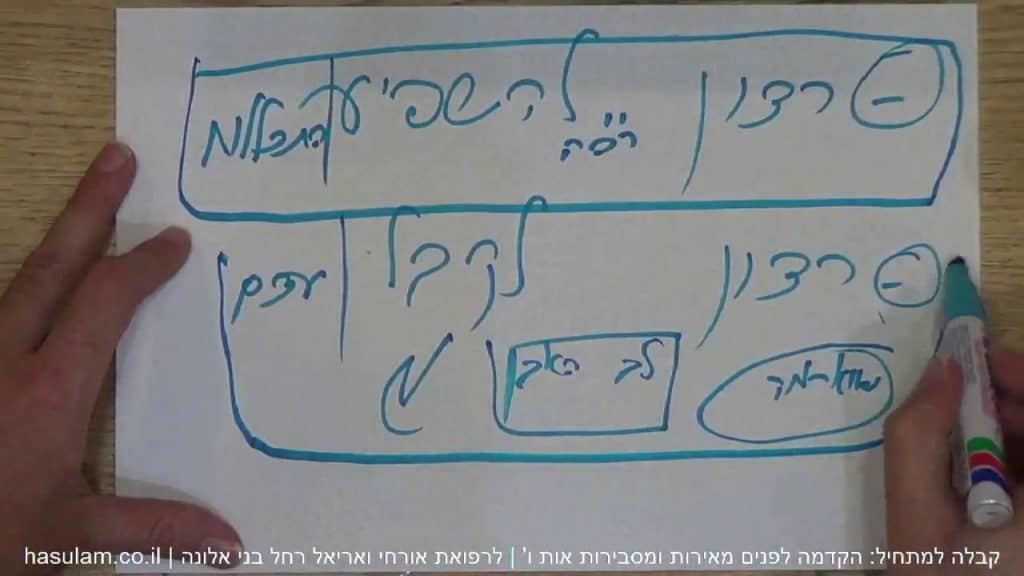 רצון להשפיע התכללות
רצון לקבל עצם
שווארמה לב האבן
קבלה למתחיל: הקדמה לפנים מאירות ומסבירות אות ו' | לרפואת אורחי ואריאל רחל בני אלונה | hasulam.co.il